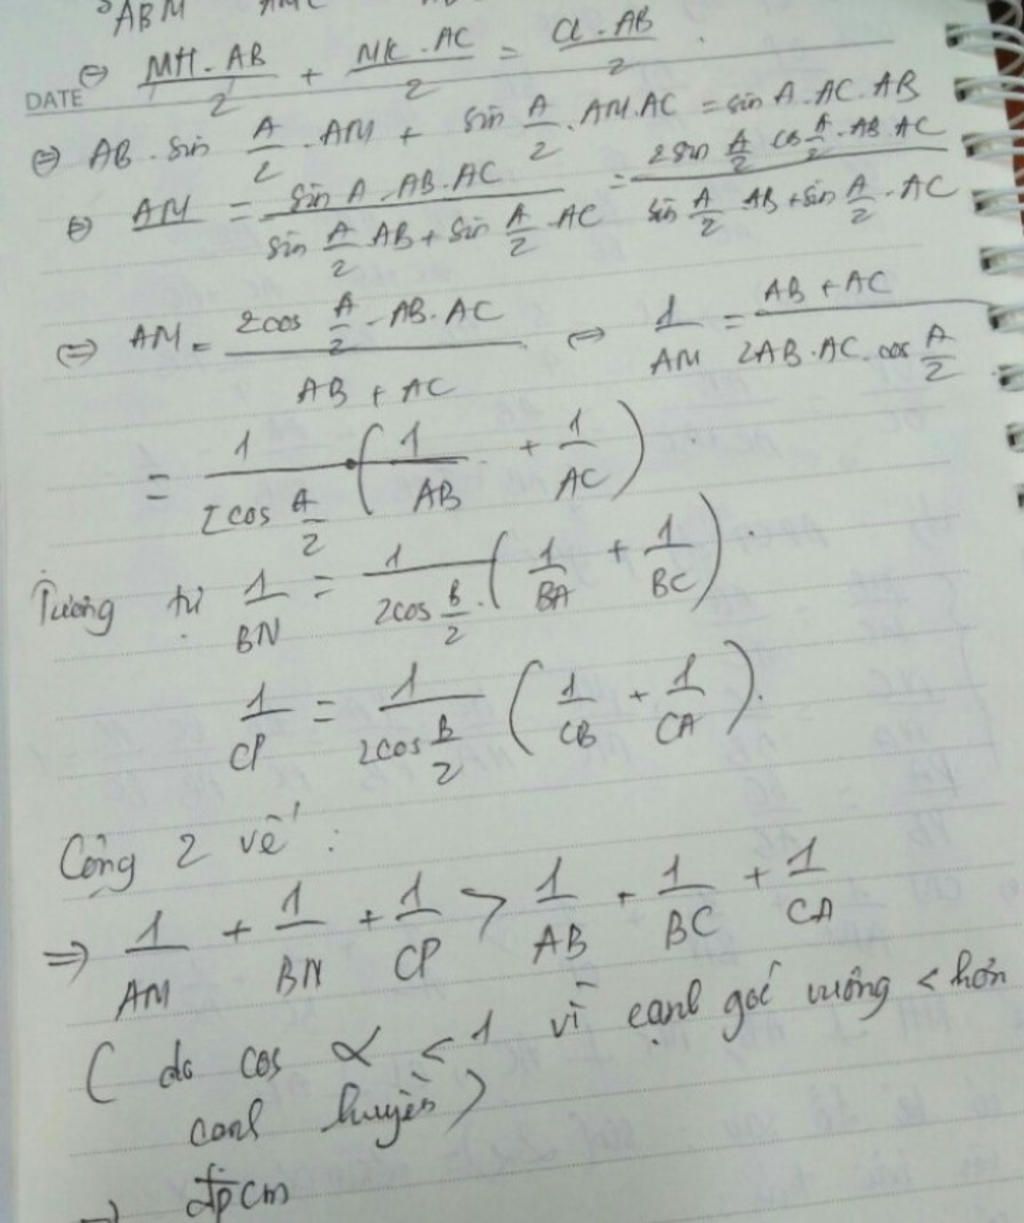 ABM
⇔ MH.AB/2 + MK.AC/2 = CI.AB/2.
DATE
⇔ AB.sin A/2.AM + sin A/2.AM.AC = sin A.AC.AB
⇔ AM = sin A.AB.AC / (sin A/2 AB + sin A/2.AC) = 2sin A/2 cos A/2.AB.AC / (sin A/2 AB + sin A/2.AC)
⇔ AM = 2cos A/2.AB.AC / (AB + AC) ⇔ 1/AM = (AB + AC) / (2AB.AC.cos A/2)
= 1/(2cos A/2).(1/AB + 1/AC)
Tương tự 1/BN = 1/(2cos B/2).(1/BA + 1/BC).
1/CP = 1/(2cos B/2) (1/CB + 1/CA).
Cộng 2 vế:
⇒ 1/AM + 1/BN + 1/CP > 1/AB + 1/BC + 1/CA
(do cos α < 1 vì cạnh góc vuông < hơn
cạnh huyền)
⇒ đpcm